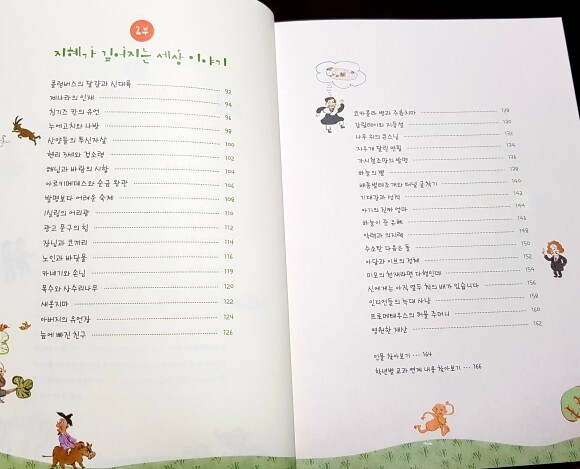 2부
지혜가 깊어지는 세상 이야기
콜럼버스의 달걀과 신대륙 92
제나라의 인재 94
칭기즈 칸의 유언 96
누에고치와 나방 98
산양들의 투신자살 100
헨리 3세와 청소령 102
해님과 바람의 시합 104
아르키메데스와 순금 왕관 106
발명보다 어려운 숙제 108
1실링의 어리광 110
광고 문구의 힘 112
장님과 코끼리 114
노인과 바닷물 116
카네기와 손님 119
목수와 상수리나무 120
새옹지마 122
아버지의 유언장 124
늪에 빠진 친구 126
코카콜라 병과 주름치마 128
갈릴레이와 지동설 130
나무 위의 큰스님 132
지우개 달린 연필 134
가시철조망의 발명 136
하늘의 별 138
배흘림 140
기대감과 성적 142
아기의 진짜 엄마 144
하늘이 준 은혜 146
악력과 의지력 148
수소탄 다음은 돌 150
아담과 이브의 정체 152
미모의 천재라면 다행인데 154
신에게는 아직 열두 척의 배가 있습니다 156
인디언들의 늑대 사냥 158
프로메테우스의 허물 주머니 160
영원한 재산 162
인물 찾아보기 … 164
학년별 교과 연계 내용 찾아보기 … 166